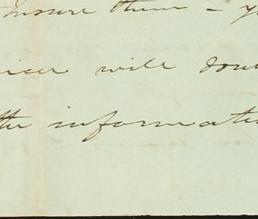 insure them - y
will
the informati